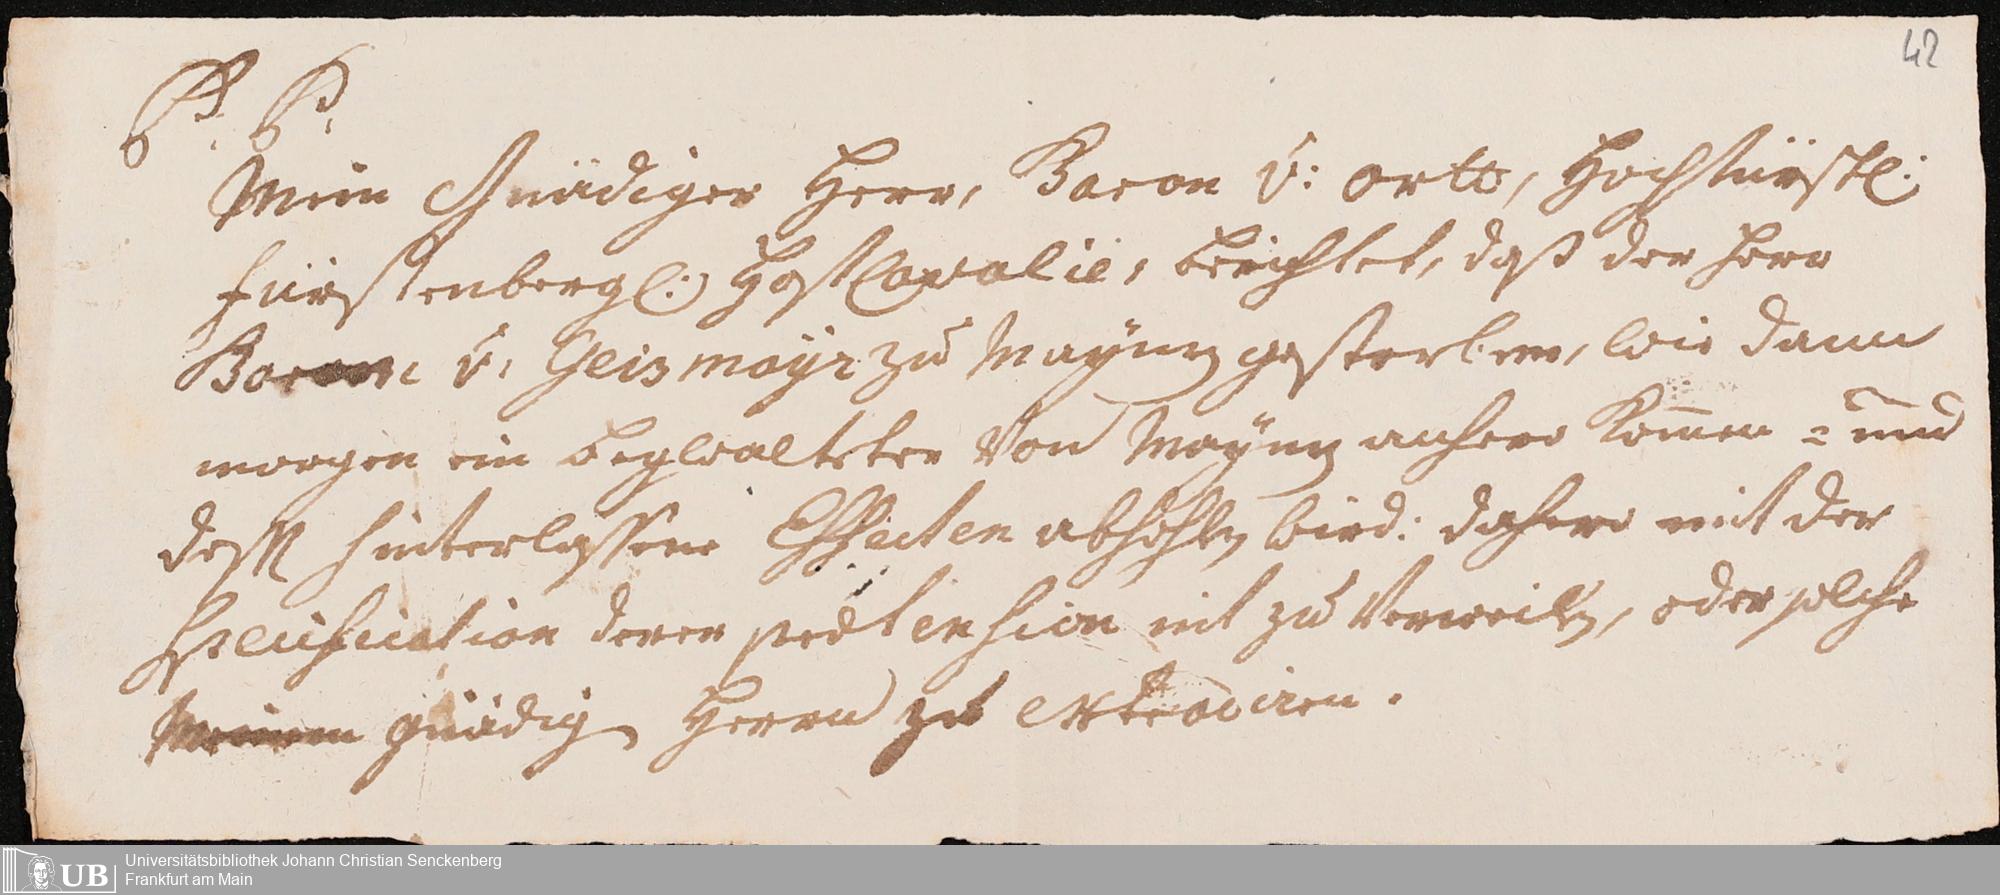 42
P. P.
Mein Gnädiger Herr, Baron v: ortt, Hochfürstl:
fürstenbergl: Hoff Cavalie, berichtet, daß der Herr
Baron v: Geismayr zu Maÿnz gestorben, wie dann
morgen ein begwalteter von Maÿnz anhero kommen = und
deßen hinterlassene Effecten abhohlen wird: dahero mit der
Specification derer pretension nit zu verweilen, oder solche
Meinem gnädigen Herrn zu extradiren.
UB
Universitätsbibliothek Johann Christian Senckenberg
Frankfurt am Main